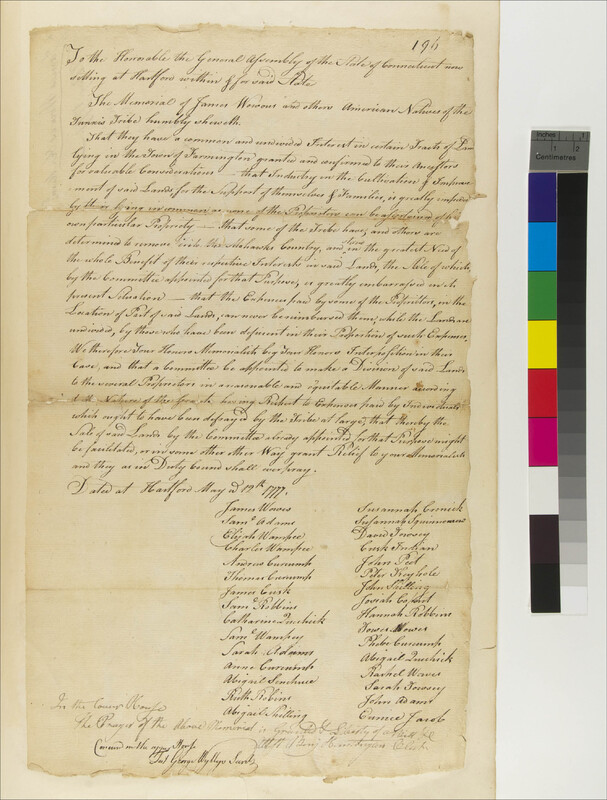 196
To the Honorable the General Assembly of the State of Connecticut now
sitting at Hartford within & for said State
The Memorial of James Wowous and others American Natives of the
Tunxis Tribe humbly sheweth
That they have a common and undivided Interest in certain Tracts of Land
lying in the Town of Farmington granted and confirmed to their Ancestors
for valuable Considerations — that Industry in the Cultivation & Improve-
ment of said Lands, for the Support of themselves & Families, is greatly
by their lying in common as none of the Proprietors can be of his
own particular Property — that some of the Tribe have, and others are
determined to remove into the Mohawks Country, and stand in the greatest Need of
the whole Benefit of their respective Interests in said Lands, the Sale of which,
by the Committee appointed for that Purpose, is greatly embarrassed in its
present Situation — that the Expences paid by some of the Proprietors, in the
Location of Part of said Lands, can never be reimbursed them, while the Lands are
undivided, by those who have been deficient in their Proportion of such Expences,
We therefore Your Honors Memorialists beg Your Honors Interposition in their
Case, and that a Committee be appointed to make a Division of said Lands
to the several Proprietors in a reasonable and equitable Manner according
to the Nature of the Grant, having Respect to Expences paid by Individuals
which ought to have been defrayed by the Tribe at large, that thereby the
Sale of said Lands by the Committee already appointed for that Purpose might
be facilitated, or in some other other Way grant Relief to your Memorialists
and they as in Duty bound shall ever pray.
Dated at Hartford May 19th 1777.
James Wowos
Saml Adams
Elijah Wampee
Charles Wampee
Andrew Curcomb
Thomas Curcomb
James Cusk
Saml Robbins
Catharine Quchick
Saml Wampey
Sarah Adams
Anne Curcomb
Abigail
Ruth Robins
Abigail Shilling
Susannah Cornick
Susannah
David Towsey
Cusk Indian
John Peet
Peter Keyhole
John Shilling
Josiah
Hannah Robbins
Towes Wowes
Phebe Curcomb
Abigail Quchick
Rachel Wowes
Sarah Towsey
John Adams
Eunice Jacob
In the Lower House
The Prayer of the Above Memorial is Granted & Liberty of a Bill &c
Test Benj Huntington Clerk
Concurred in the upper House
Test George Wyllys Secrety
inches 1
1 2
Centimetres